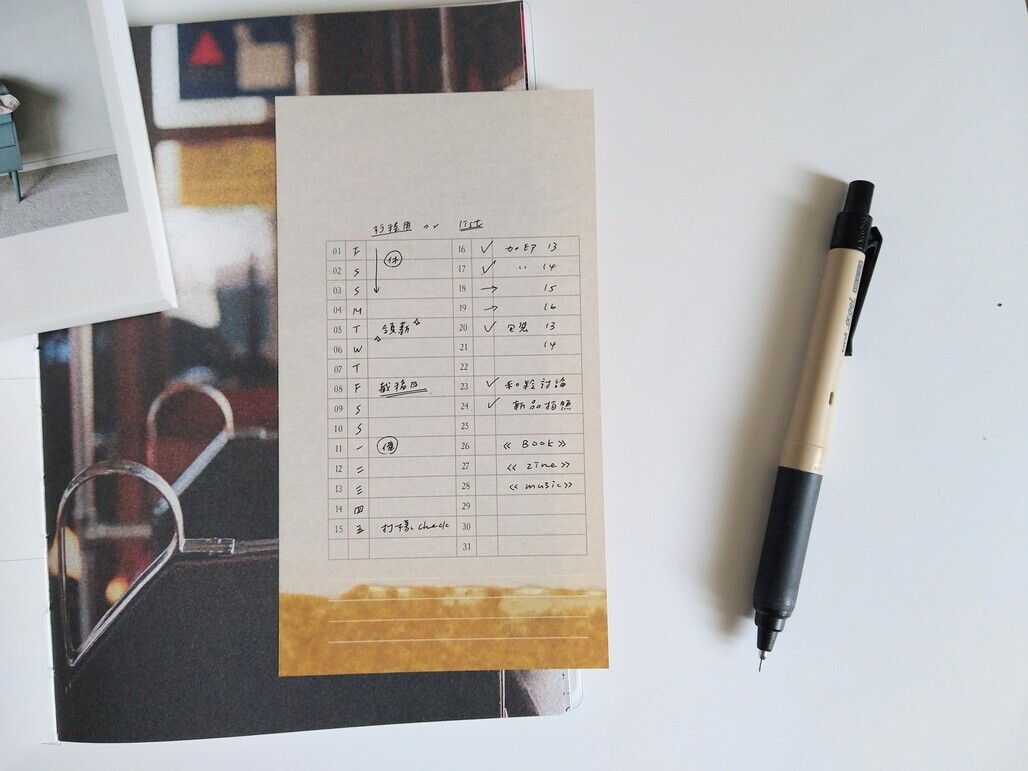 行程用 or list
01 F 休
02 S
03 S
04 M
05 T 領薪
06 W
07 T
08 F 截稿日
09 S
10 S
11 一
12 二
13 三
14 四
15 五 打樣 check
16 ✓ 加印 13
17 ✓ 〃 14
18 → 15
19 → 16
20 ✓ 包裝 13
21 14
22
23 ✓ 和粒討論
24 ✓ 新品拍照
25
26 《Book》
27 《zine》
28 《music》
29
30
31